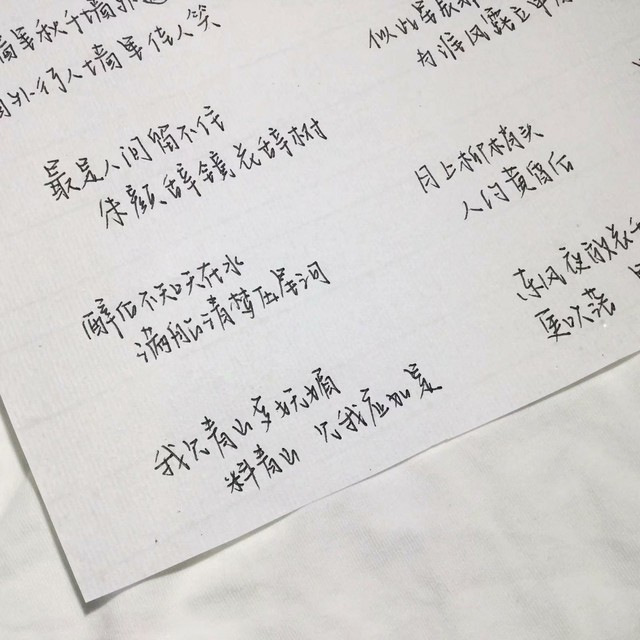 墙里秋千墙外道
墙外行人墙里佳人笑
最是人间留不住
朱颜辞镜花辞树
醉后不知天在水
满船清梦压星河
我见青山多妩媚
料青山 见我应如是
似此星辰
为谁风露立中
月上柳梢头
人约黄昏后
东风夜放花千
更吹落